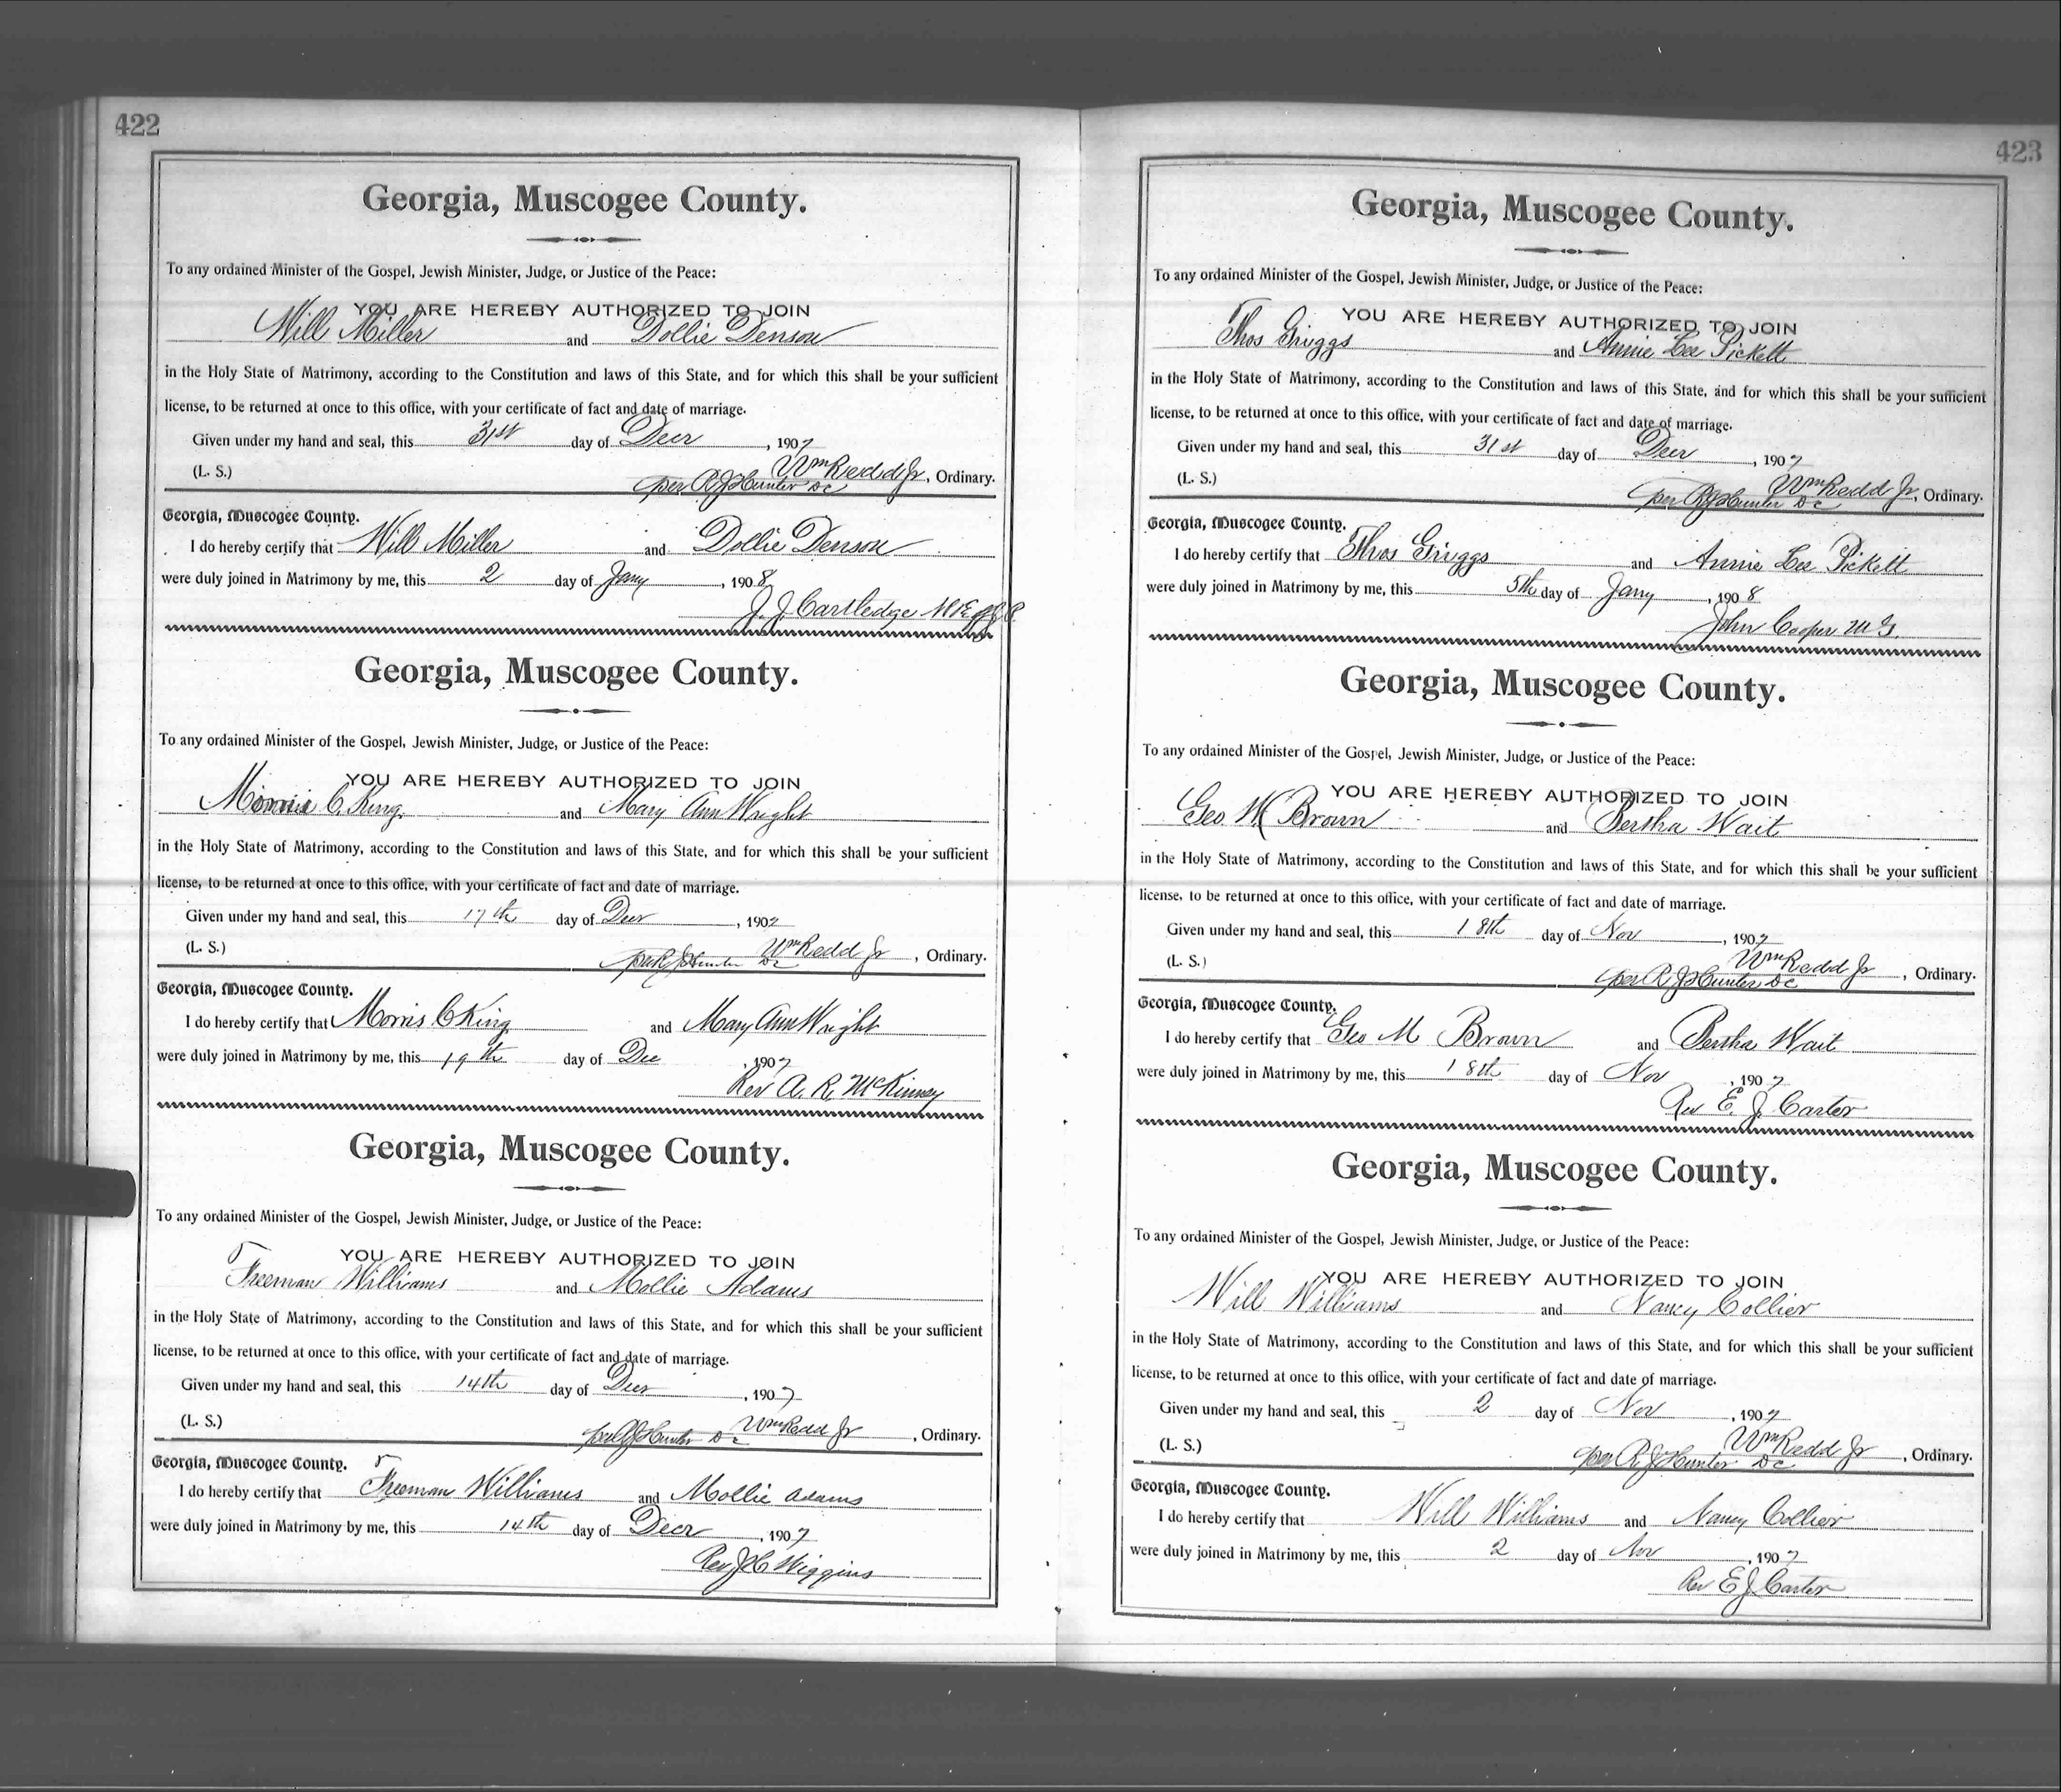 422
Georgia, Muscogee County.
To any ordained Minister of the Gospel, Jewish Minister, Judge, or Justice of the Peace:
YOU ARE HEREBY AUTHORIZED TO JOIN
Will Miller and Dollie Denson
in the Holy State of Matrimony, according to the Constitution and laws of this State, and for which this shall be your sufficient
license, to be returned at once to this office, with your certificate of fact and date of marriage.
Given under my hand and seal, this 31st day of Decr, 1907
(L. S.) Wm Redd Jr, Ordinary.
per R J Hunter DC
Georgia, Muscogee County.
I do hereby certify that Will Miller and Dollie Denson
were duly joined in Matrimony by me, this 2 day of Jany, 1908
J. J. Cartledge
Georgia, Muscogee County.
To any ordained Minister of the Gospel, Jewish Minister, Judge, or Justice of the Peace:
YOU ARE HEREBY AUTHORIZED TO JOIN
C. King and Mary Ann Wright
in the Holy State of Matrimony, according to the Constitution and laws of this State, and for which this shall be your sufficient
license, to be returned at once to this office, with your certificate of fact and date of marriage.
Given under my hand and seal, this 17th day of Decr, 1907
(L. S.) Wm Redd Jr, Ordinary.
per R J Hunter DC
Georgia, Muscogee County.
I do hereby certify that Morris C King and Mary Ann Wright
were duly joined in Matrimony by me, this 19th day of Dec, 1907
Rev A. R. McKinney
Georgia, Muscogee County.
To any ordained Minister of the Gospel, Jewish Minister, Judge, or Justice of the Peace:
YOU ARE HEREBY AUTHORIZED TO JOIN
Freeman Williams and Mollie Adams
in the Holy State of Matrimony, according to the Constitution and laws of this State, and for which this shall be your sufficient
license, to be returned at once to this office, with your certificate of fact and date of marriage.
Given under my hand and seal, this 14th day of Decr, 1907
(L. S.) Wm Redd Jr, Ordinary.
per R J Hunter DC
Georgia, Muscogee County.
I do hereby certify that Freeman Williams and Mollie Adams
were duly joined in Matrimony by me, this 14th day of Decr, 1907
Rev J C Wiggins
423
Georgia, Muscogee County.
To any ordained Minister of the Gospel, Jewish Minister, Judge, or Justice of the Peace:
YOU ARE HEREBY AUTHORIZED TO JOIN
Thos Griggs and Annie Lee Pickett
in the Holy State of Matrimony, according to the Constitution and laws of this State, and for which this shall be your sufficient
license, to be returned at once to this office, with your certificate of fact and date of marriage.
Given under my hand and seal, this 31st day of Decr, 1907
(L. S.) Wm Redd Jr, Ordinary.
per R J Hunter DC
Georgia, Muscogee County.
I do hereby certify that Thos Griggs and Annie Lee Pickett
were duly joined in Matrimony by me, this 5th day of Jany, 1908
John Cooper M G.
Georgia, Muscogee County.
To any ordained Minister of the Gospel, Jewish Minister, Judge, or Justice of the Peace:
YOU ARE HEREBY AUTHORIZED TO JOIN
Geo M Brown and Bertha Wait
in the Holy State of Matrimony, according to the Constitution and laws of this State, and for which this shall be your sufficient
license, to be returned at once to this office, with your certificate of fact and date of marriage.
Given under my hand and seal, this 18th day of Nov, 1907
(L. S.) Wm Redd Jr, Ordinary.
per R J Hunter DC
Georgia, Muscogee County.
I do hereby certify that Geo M Brown and Bertha Wait
were duly joined in Matrimony by me, this 18th day of Nov, 1907
Rev E. J. Carter
Georgia, Muscogee County.
To any ordained Minister of the Gospel, Jewish Minister, Judge, or Justice of the Peace:
YOU ARE HEREBY AUTHORIZED TO JOIN
Will Williams and Nancy Collier
in the Holy State of Matrimony, according to the Constitution and laws of this State, and for which this shall be your sufficient
license, to be returned at once to this office, with your certificate of fact and date of marriage.
Given under my hand and seal, this 2 day of Nov, 1907
(L. S.) Wm Redd Jr, Ordinary.
per R J Hunter DC
Georgia, Muscogee County.
I do hereby certify that Will Williams and Nancy Collier
were duly joined in Matrimony by me, this 2 day of Nov, 1907
Rev E J Carter